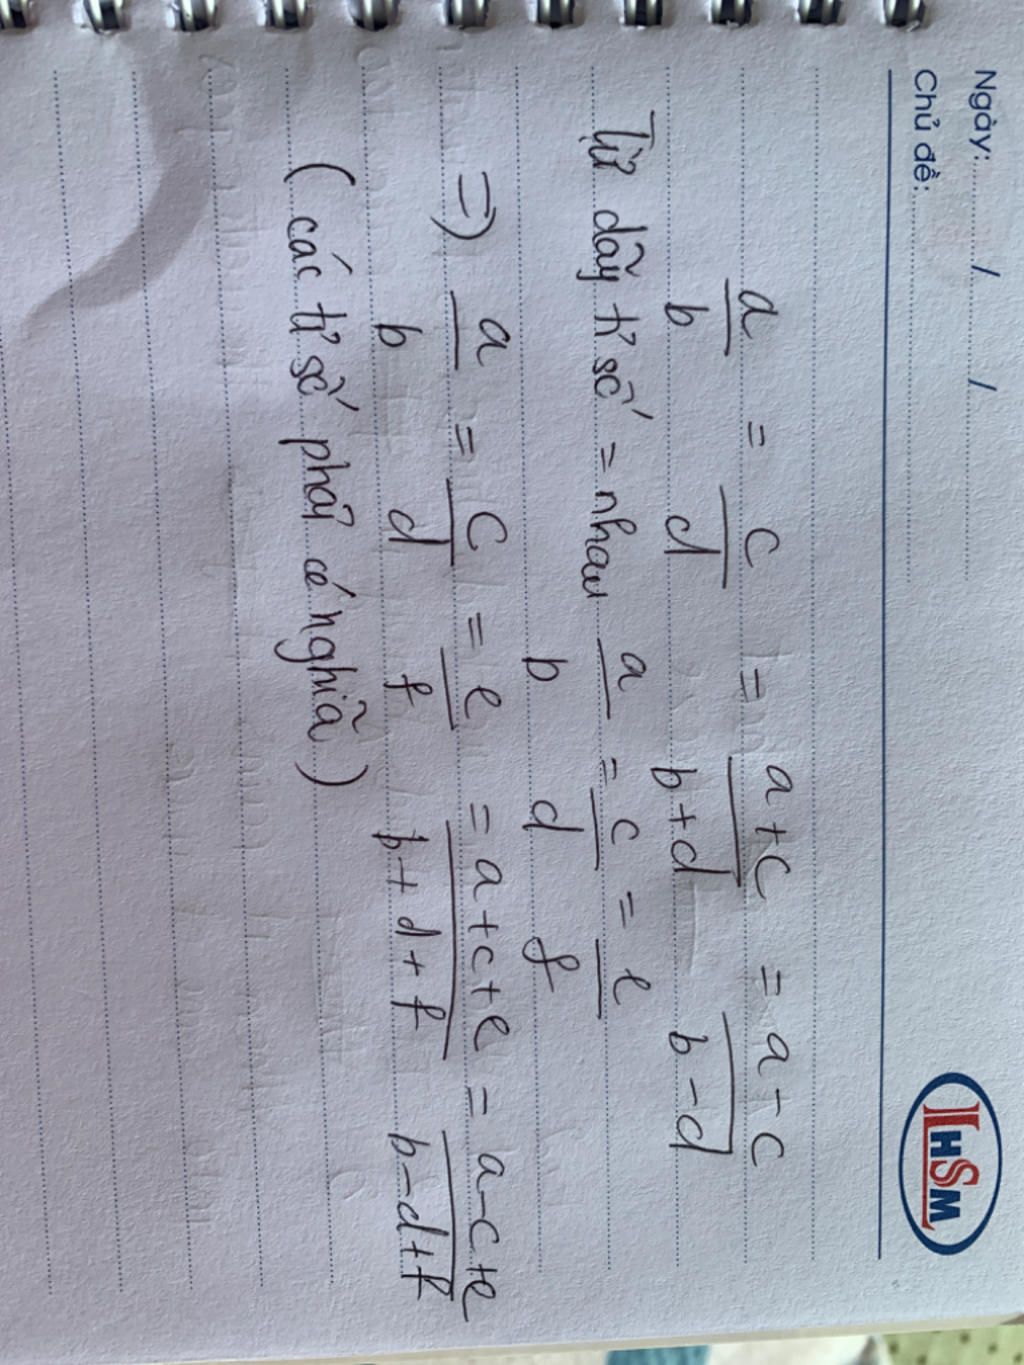 Ngày: / /
Chủ đề:
LHSM
a/b = c/d = a+c/b+d = a-c/b-d
Từ dãy tỉ số = nhau a/b = c/d = e/f
=) a/b = c/d = e/f = a+c+e/b+d+f = a-c+e/b-d+f
(các tỉ số phải có nghĩa)